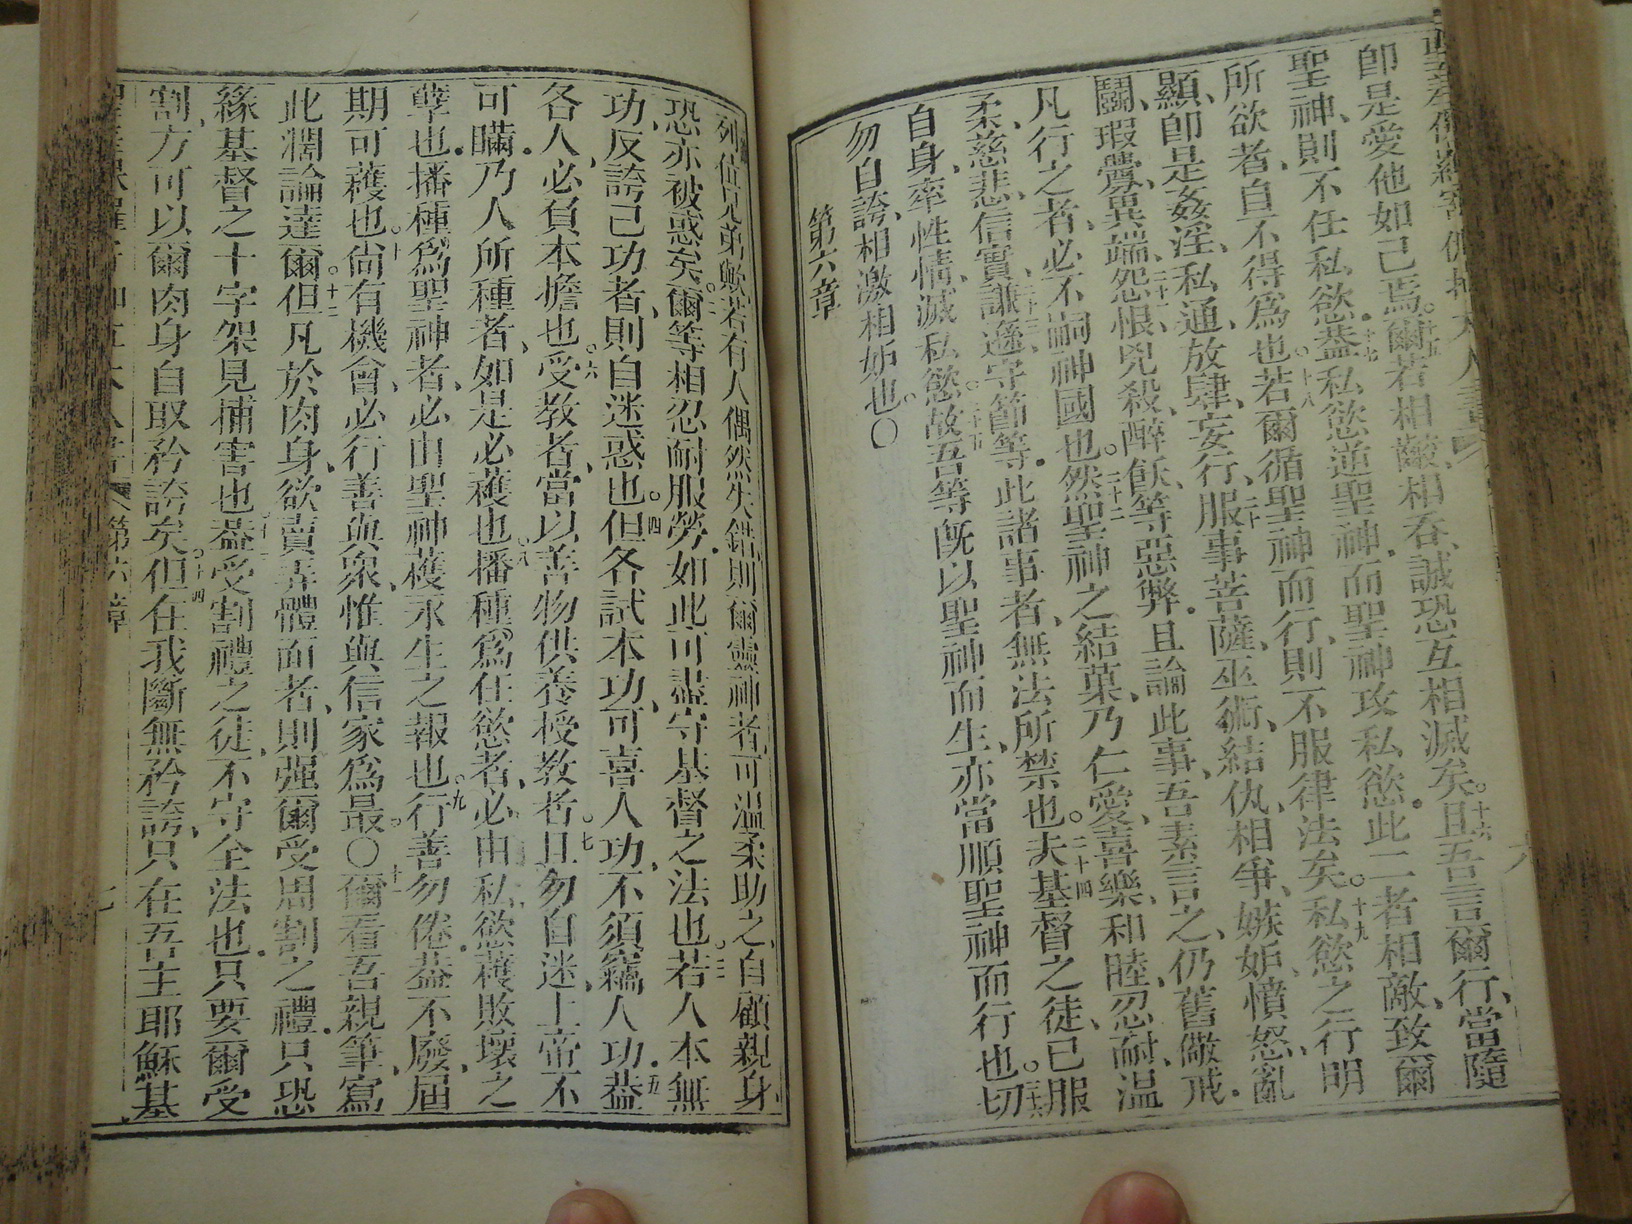 卽是愛他如己焉。十五爾若相齩、相吞、誠恐互相滅矣。十六且吾言爾行、當隨
聖神、則不任私慾。十七葢私慾逆聖神．而聖神攻私慾．此二者相敵、致爾
所欲者、自不得爲也。十八若爾循聖神而行、則不服律法矣。十九私慾之行明
顯、卽是姦淫、私通、放肆、妄行、二十服事菩薩、巫術、結仇、相爭、嫉妬、憤怒、亂
鬬、瑕釁、異端、二十一怨恨、兇殺、醉飫、等惡弊．且論此事、吾素言之、仍舊儆戒．
凡行之者、必不嗣神國也。二十二然聖神之結菓、乃仁愛、喜樂、和睦、忍耐、温
柔、慈悲、信實、二十三謙遜、守節等．此諸事者、無法所禁也。二十四夫基督之徒、已服
自身、率性情、滅私慾。二十五故吾等旣以聖神而生、亦當順聖神而行也。二十六切
勿自誇、相激、相妬也。〇
第六章
列位兄弟歟、若有人偶然失錯、則爾靈神者、可温柔助之、自顧親身、
恐亦被惑矣。二爾等相忍耐服勞．如此可盡守基督之法也。三若人本無
功、反誇己功者、則自迷惑也。四但各試本功、可喜人功、不須竊人功．五葢
各人、必負本擔也。六受教者、當以善物供養授教者。七且勿自迷、上帝不
可瞞．乃人所種者、如是必穫也。八播種爲任慾者、必由私慾穫敗壞之
孽也．播種爲聖神者、必由聖神穫永生之報也。九行善勿倦．葢不廢、屆
期可穫也。十尙有機會、必行善與衆、惟與信家爲最。〇十一爾看吾親筆、寫
此濶論達爾。十二但凡於肉身、欲賣弄體面者、則强爾受周割之禮．只恐
緣基督之十字架見捕害也。十三葢受割禮之徒、不守全法也．只要爾受
割、方可以爾肉身自取矜誇矣。十四但在我斷無矜誇、只在吾主耶穌基
第六章
七